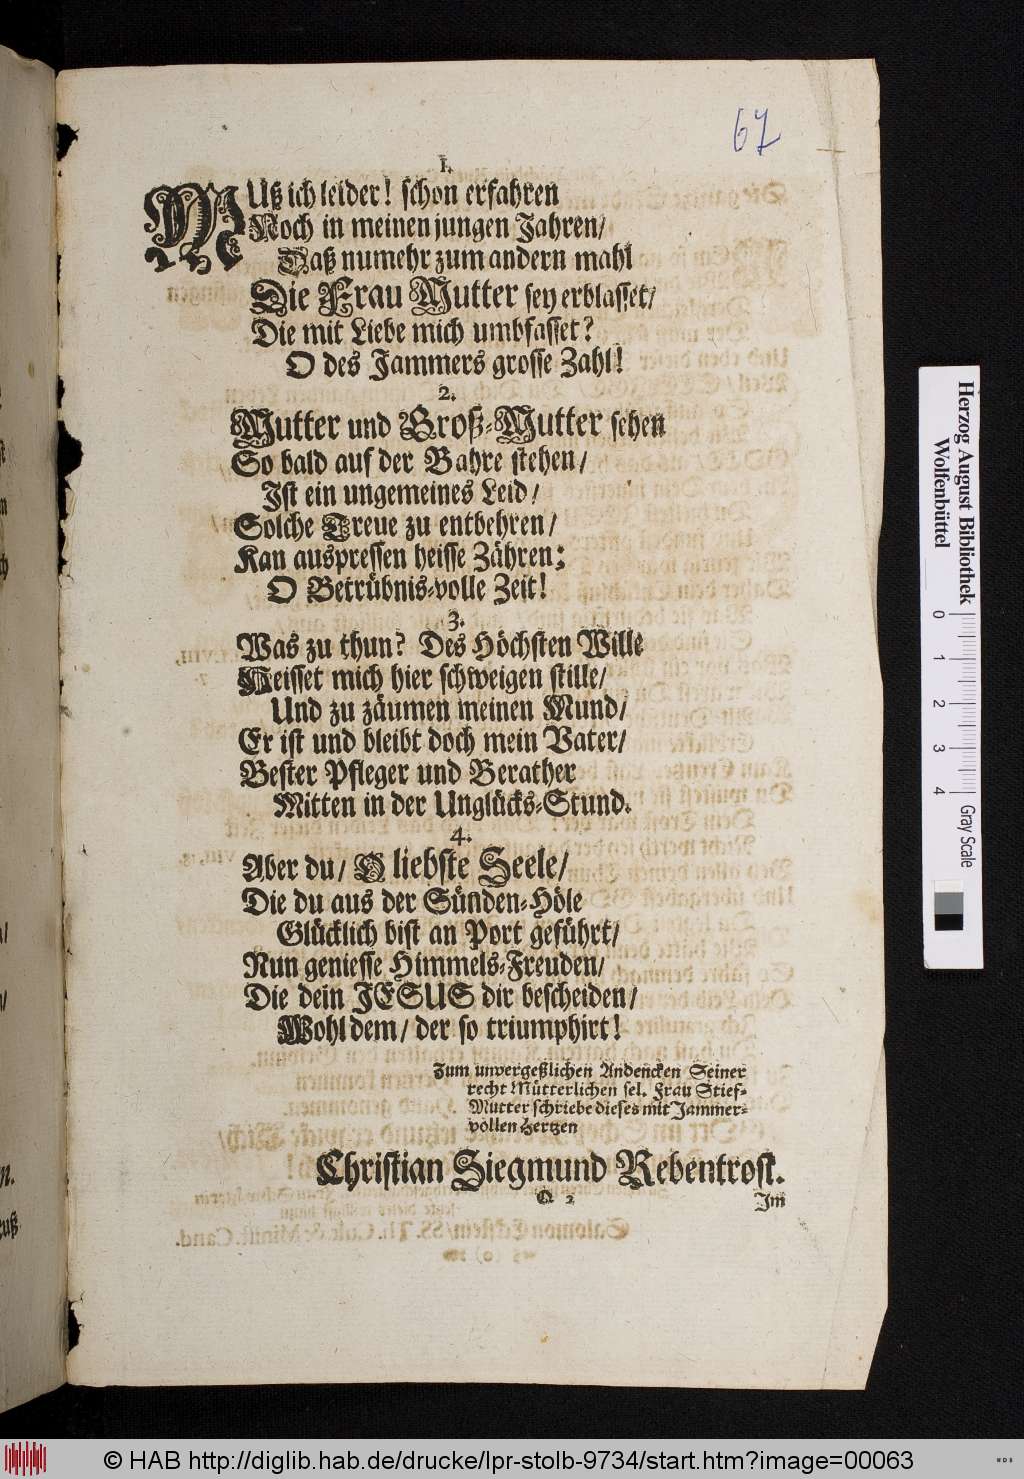 67
1.
MUß ich leider! schon erfahren
Noch in meinen jungen Jahren/
Daß numehr zum andern mahl
Die Frau Mutter sey erblasset/
Die mit Liebe mich umbfasset?
O des Jammers grosse Zahl!
2.
Mutter und Groß-Mutter sehen
So bald auf der Bahre stehen/
Ist ein ungemeines Leid/
Solche Treue zu entbehren/
Kan auspressen heisse Zähren;
O Betrübnis-volle Zeit!
3.
Was zu thun? Des Höchsten Wille
Heisset mich hier schweigen stille/
Und zu zäumen meinen Mund/
Er ist und bleibt doch mein Vater/
Bester Pfleger und Berather
Mitten in der Unglücks-Stund.
4.
Aber du/ O liebste Seele/
Die du aus der Sünden-Höle
Glücklich bist an Port geführt/
Nun geniesse Himmels-Freuden/
Die dein JESUS dir bescheiden/
Wohl dem/ der so triumphirt!
Zum unvergeßlichen Andencken Seiner
recht Mütterlichen sel. Frau Stief-
Mutter schriebe dieses mit Jammer-
vollen Hertzen
Christian Siegmund Rebentrost.
Q 2
Im
Herzog August Bibliothek
Wolfenbüttel
0 1 2 3 4
Gray Scale
© HAB http://diglib.hab.de/drucke/lpr-stolb-9734/start.htm?image=00063